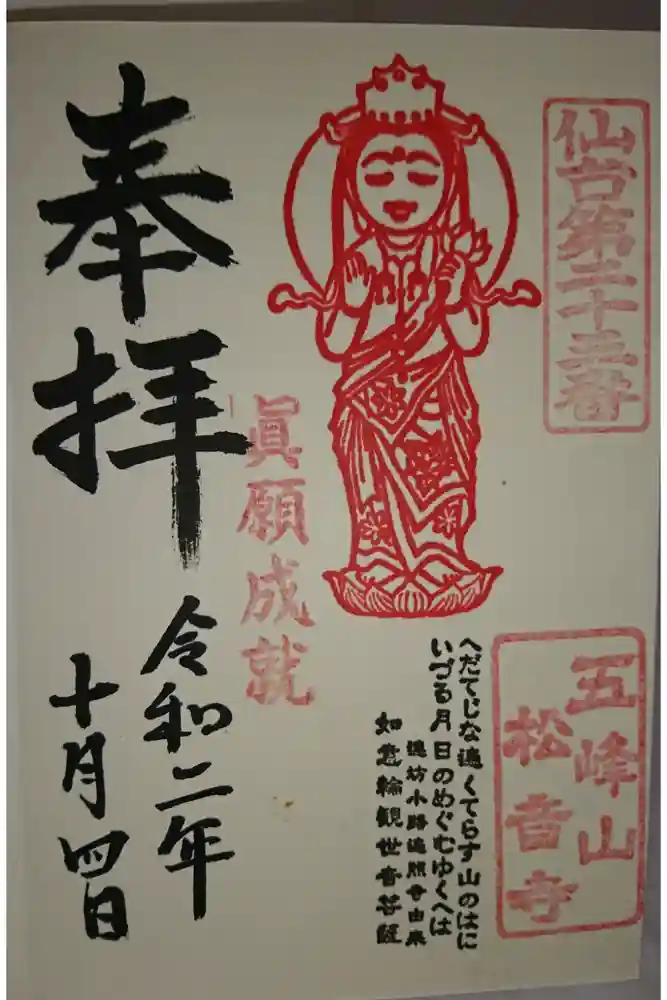 仙台第二十三番
五峰山
松音寺
へだてじな遍くてらす山のはに
いづる月日のめぐむゆくへは
遍坊小路遍照寺由来
如意輪観世音菩薩
眞願成就
奉拝
令和二年
十月四日